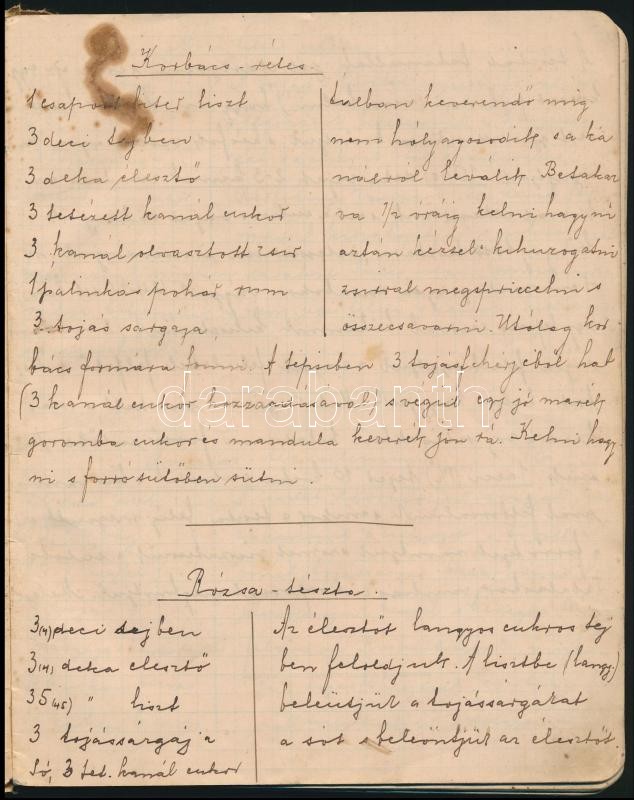 Korbács-rétes
1 csapott liter liszt
3 deci tejben
3 deka élesztő
3 tetézett kanál cukor
3 kanál olvasztott zsir
1 pálinkás pohár rum
3 tojás sárgája
tálban keverendő mig
nem hólyagosodik, s a ka
nálról leválik. Betakar
va 1/2 óráig kelni hagyni
aztán kézzel kihuzogatni
zsirral megspriccelni s
összecsavarni. Utólag kor
bács formára fonni. A tepsiben 3 tojásfehérjéből hab
(3 kanál cukor hozzáadásával) s végül egy jó marék
goromba cukor és mandula keverék jön rá. Kelni hagy
ni s forró sütőben sütni.
darabanth
Rózsa-tészta.
3(4) deci tejben
3(4) deka élesztő
35(45) " liszt
3 tojássárgája
Só, 3 tet. kanál cukor
Az élesztőt langyos cukros tej
ben feloldjuk. A lisztbe (langy.)
beleütjük a tojássárgákat
a sót s beleöntjük az élesztőt.